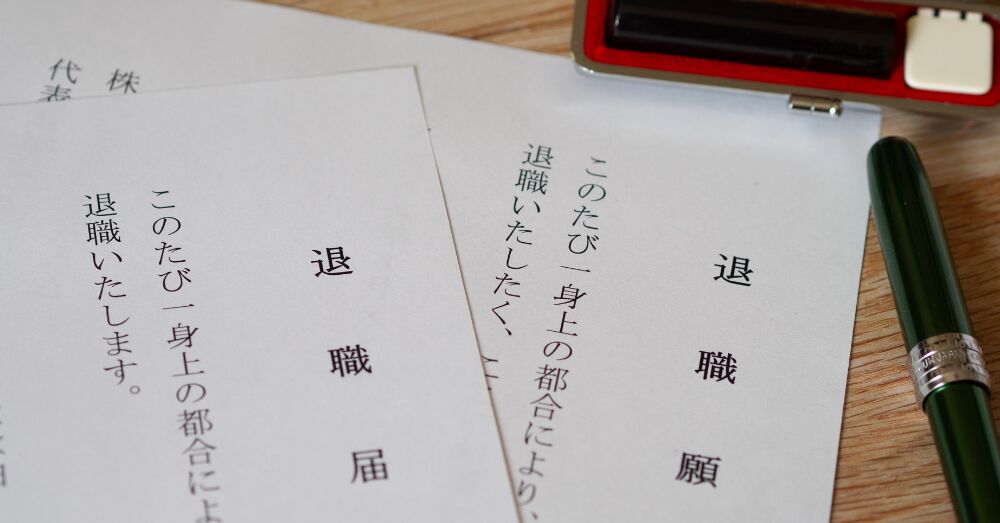 退職願
このたび一身上の都合により、
退職いたしたく、
退職届
このたび一身上の都合によ
退職いたします。
株
代表